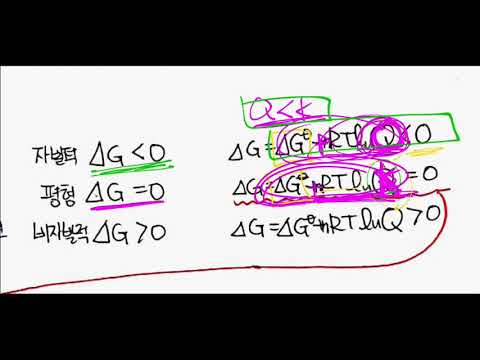 Q<K
자발적 ΔG<0 ΔG=ΔG°+nRTlnQ<0
평형 ΔG=0 ΔG=ΔG°+nRTln =0
비자발적 ΔG>0 ΔG=ΔG°+nRTlnQ>0